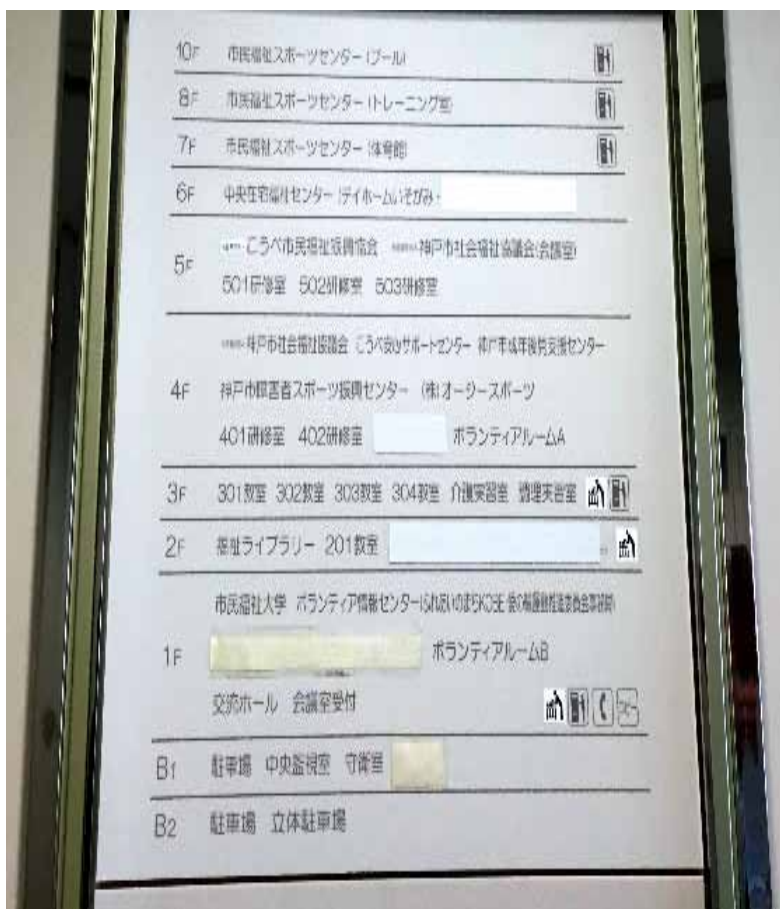 10F 市民福祉スポーツセンター(プール)
8F 市民福祉スポーツセンター(トレーニング室)
7F 市民福祉スポーツセンター(体育館)
6F 中央在宅福祉センター(デイホームいそがみ・
5F こうべ市民福祉振興協会 神戸市社会福祉協議会(会議室)
501研修室 502研修室 503研修室
神戸市社会福祉協議会 こうべ安心サポートセンター 神戸市成年後見支援センター
4F 神戸市障害者スポーツ振興センター (株)オージースポーツ
401研修室 402研修室 ボランティアルームA
3F 301教室 302教室 303教室 304教室 介護実習室 調理実習室
2F 福祉ライブラリー 201教室
市民福祉大学 ボランティア情報センター(ふれあいのまちKOBE・愛の輪運動推進委員会事務局)
1F ボランティアルームB
交流ホール 会議室受付
B1 駐車場 中央監視室 守衛室
B2 駐車場 立体駐車場